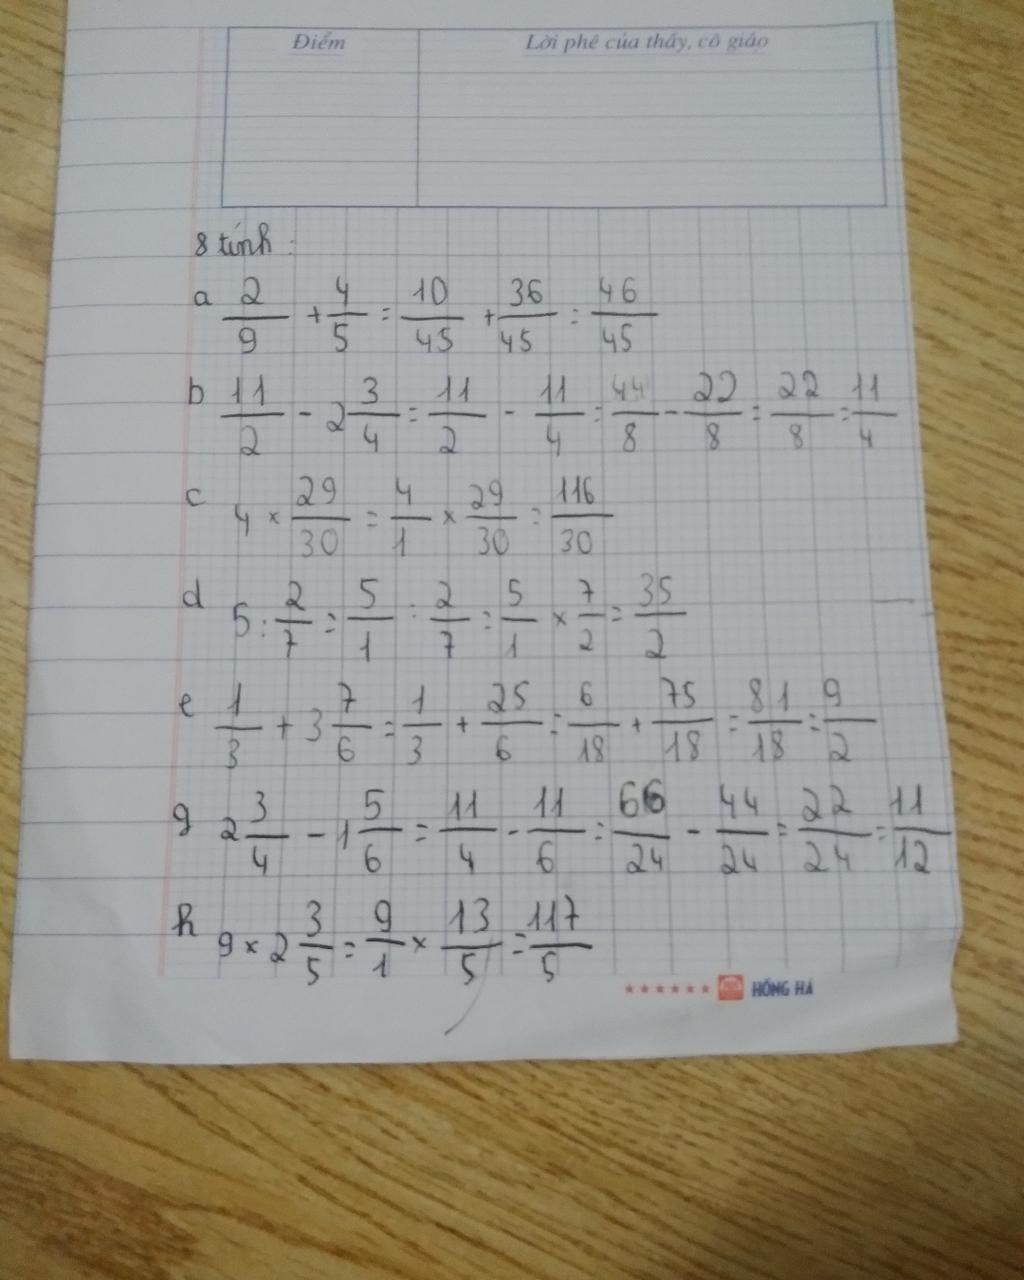 Điểm Lời phê của thầy, cô giáo
8 tính :
a 2/9 + 4/5 = 10/45 + 36/45 = 46/45
b 11/2 - 2 3/4 = 11/2 - 11/4 = 44/8 - 22/8 = 22/8 = 11/4
c 4 × 29/30 = 4/1 × 29/30 = 116/30
d 5 : 2/7 = 5/1 : 2/7 = 5/1 × 7/2 = 35/2
e 1/3 + 3 7/6 = 1/3 + 25/6 = 6/18 + 75/18 = 81/18 = 9/2
g 2 3/4 - 1 5/6 = 11/4 - 11/6 = 66/24 - 44/24 = 22/24 = 11/12
h 9 × 2 3/5 = 9/1 × 13/5 = 117/5
HỒNG HÀ